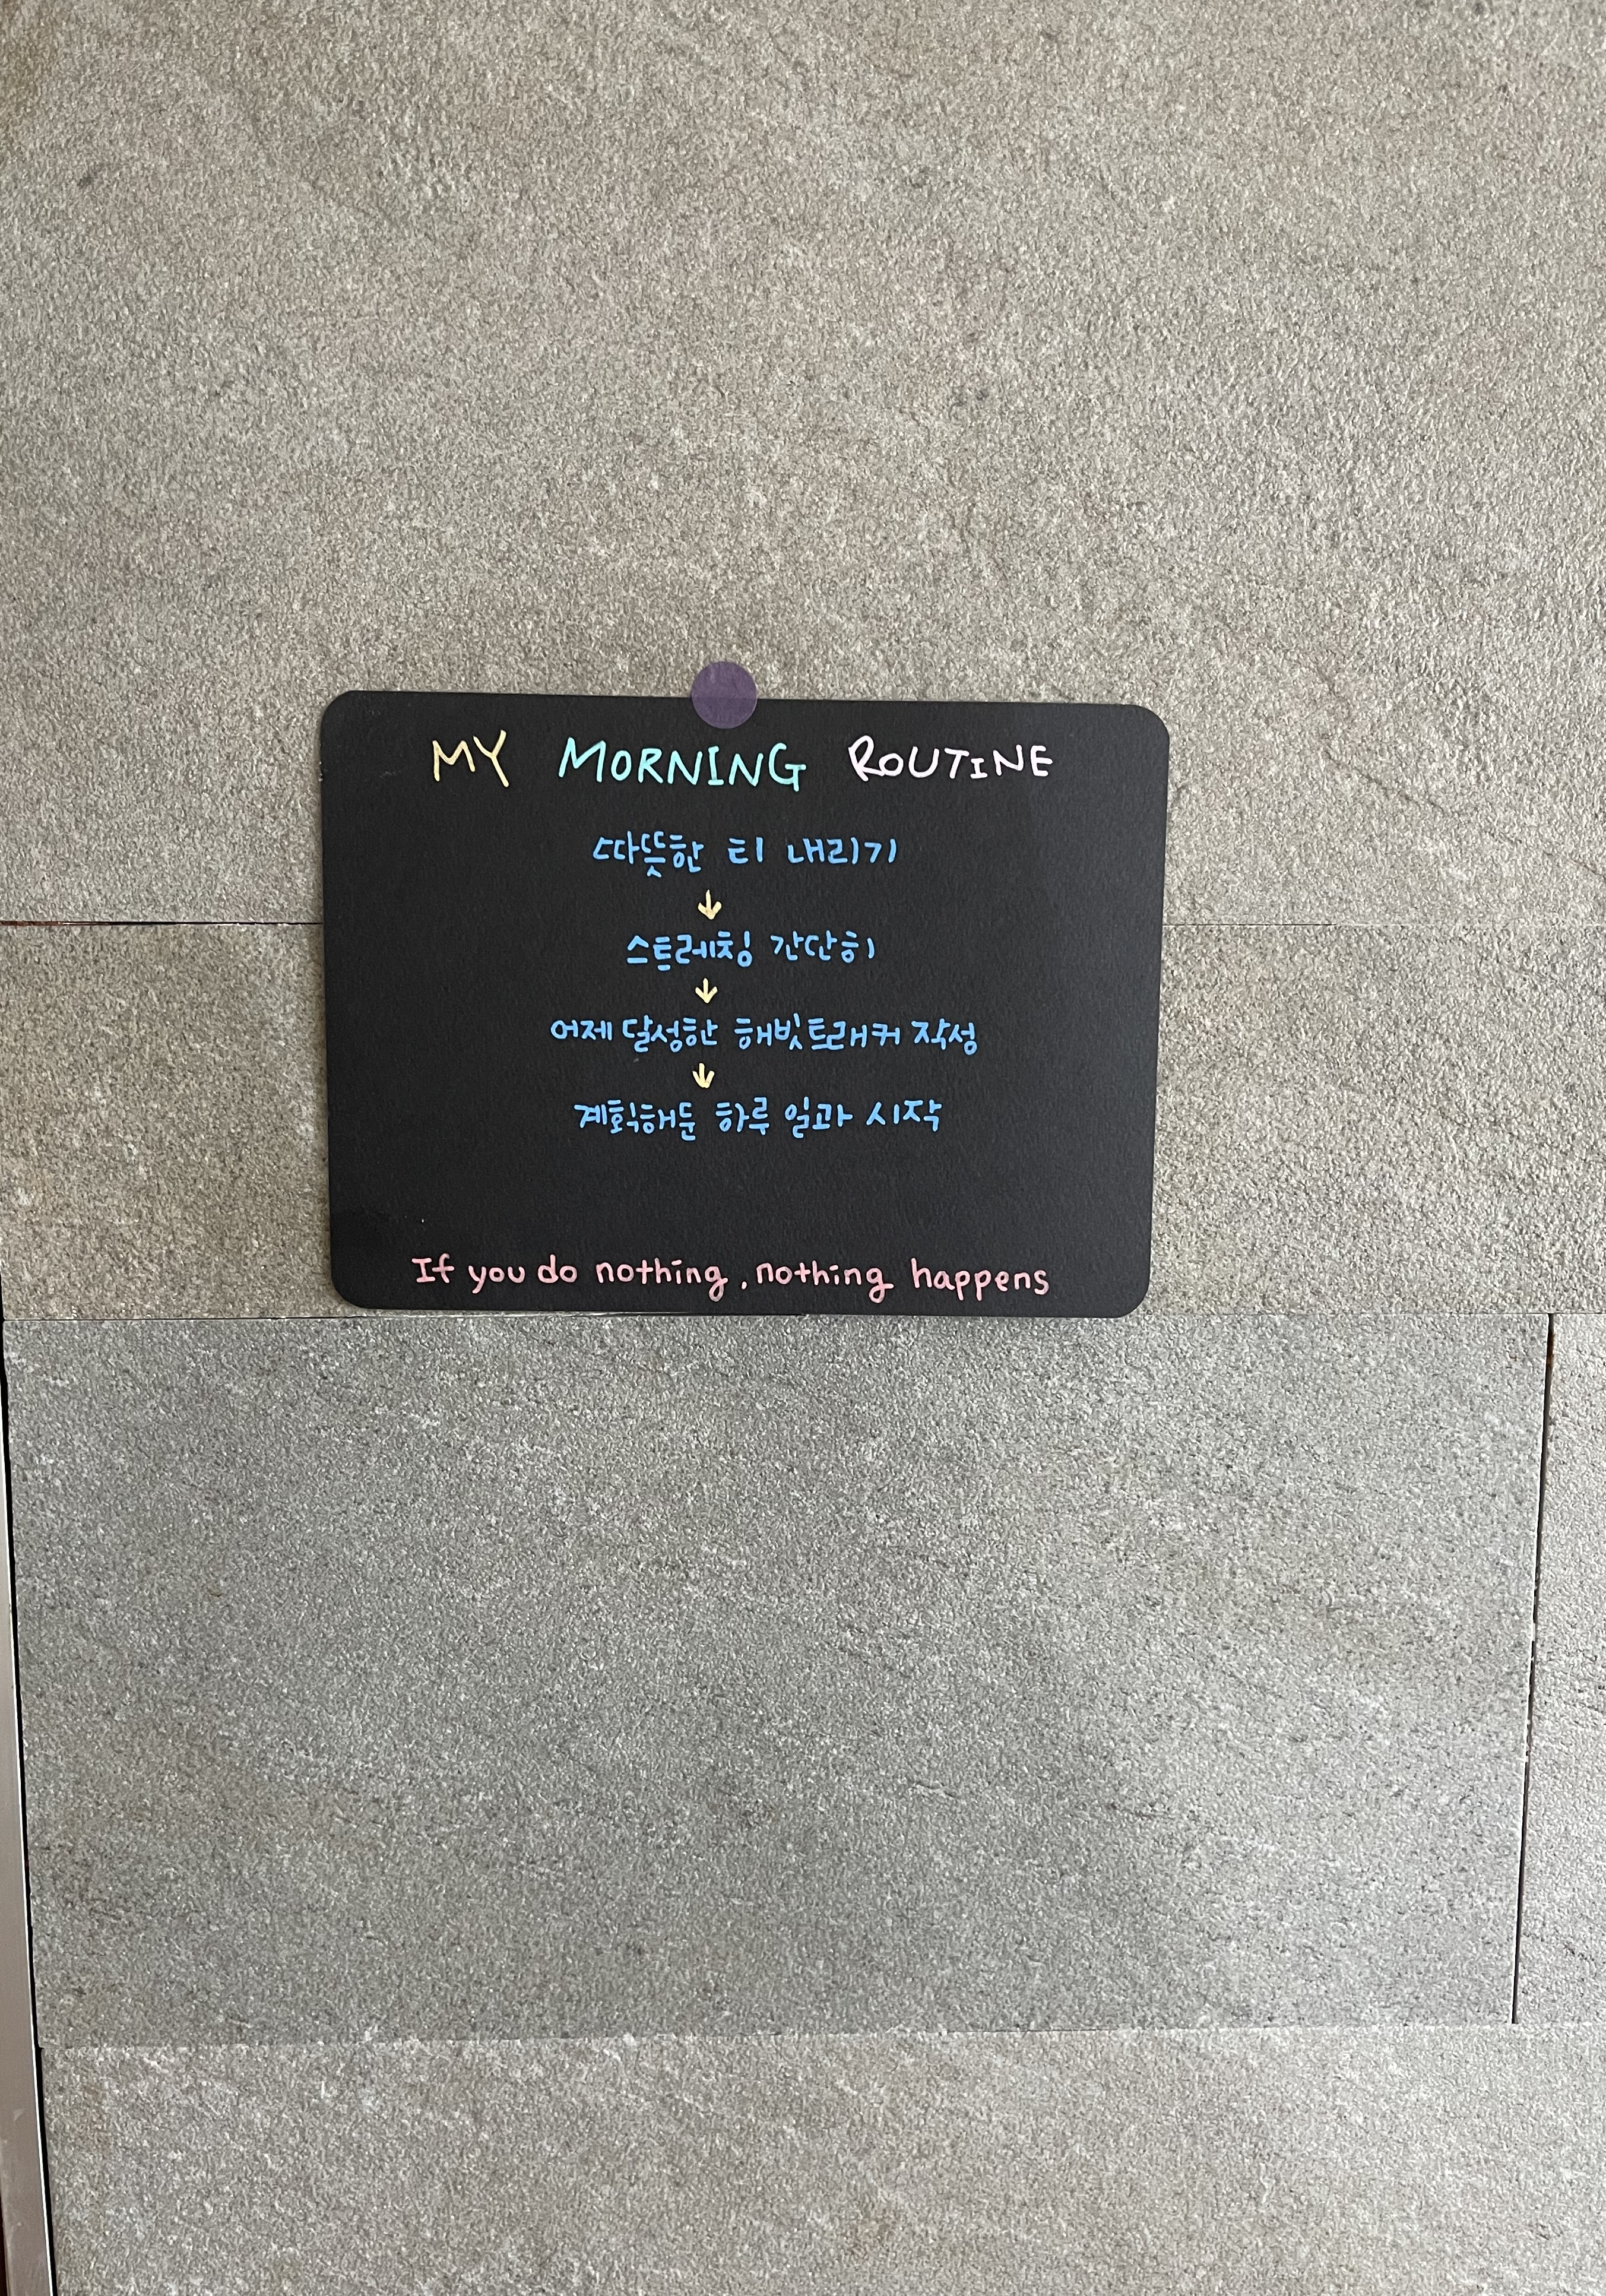 MY MORNING ROUTINE
따뜻한 티 내리기
↓
스트레칭 간단히
↓
어제 달성한 해빗트래커 작성
↓
계획해둔 하루 일과 시작
If you do nothing, nothing happens